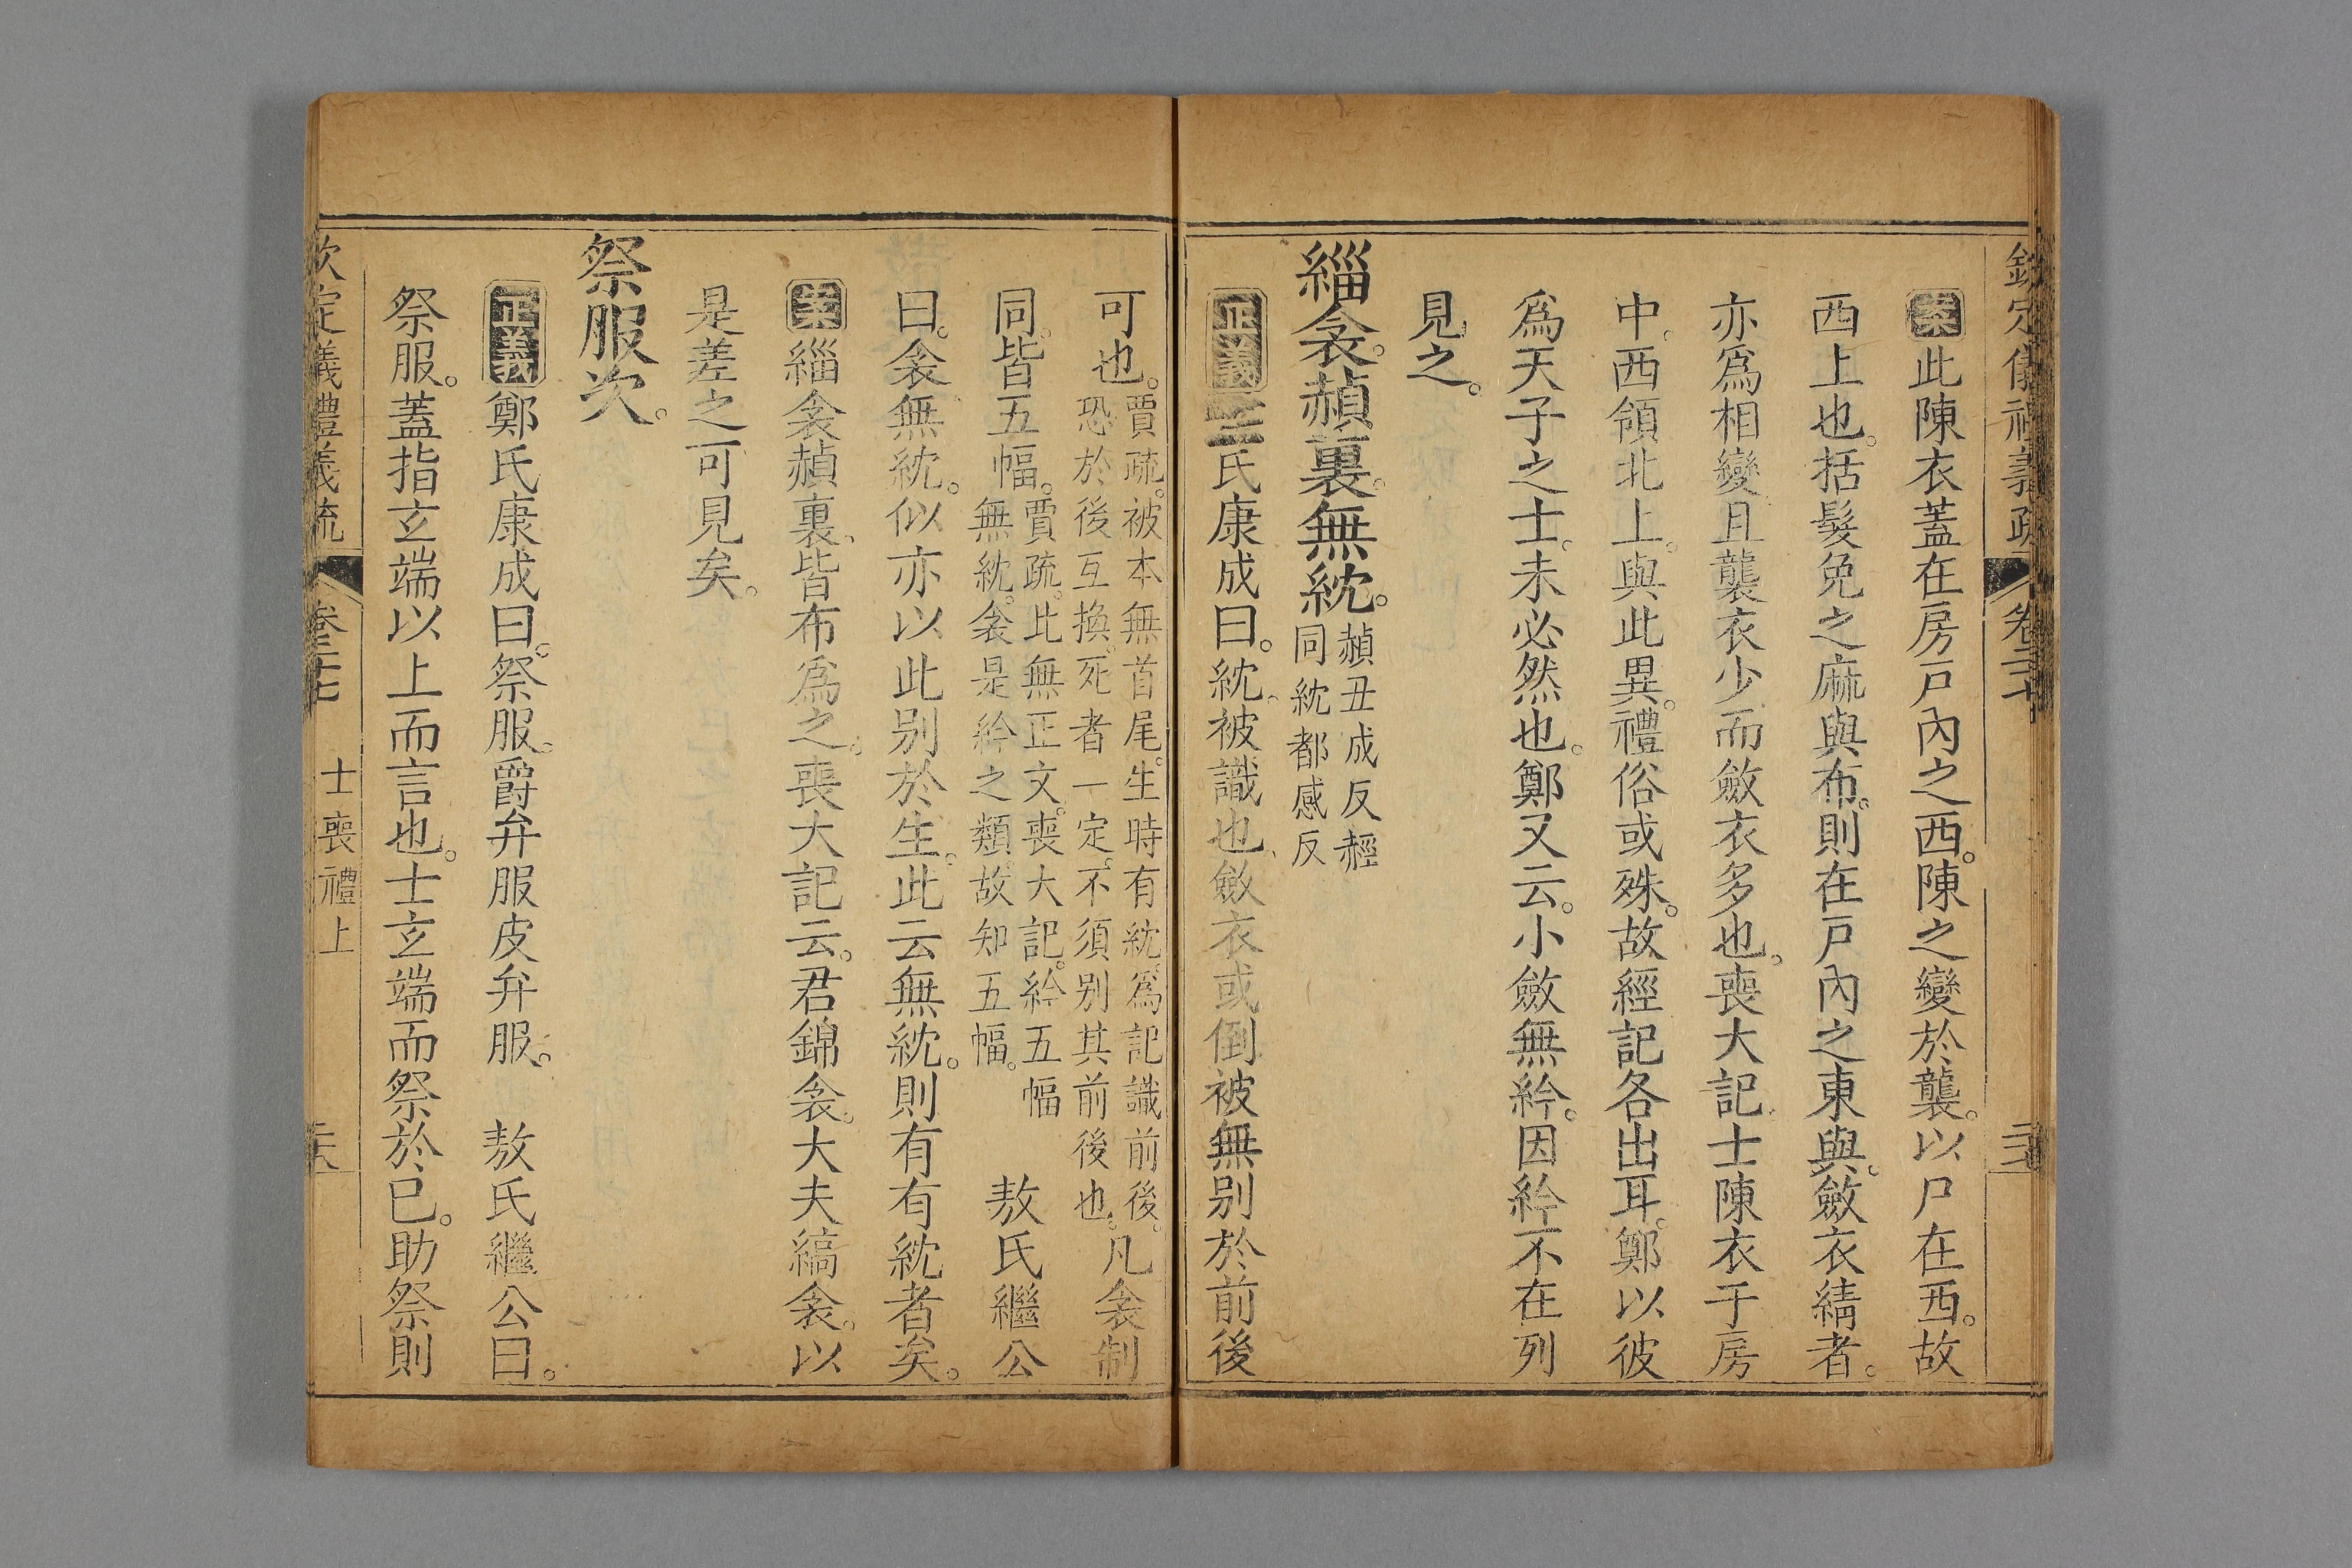 欽定儀禮義疏 卷二十七
案此陳衣蓋在房戶內之西。陳之變於襲。以尸在西。故
西上也。括髮免之麻與布。則在戶內之東與。斂衣綪者。
亦爲相變且襲衣少而斂衣多也。喪大記士陳衣于房
中。西領北上。與此異。禮俗或殊。故經記各出耳。鄭以彼
爲天子之士。未必然也。鄭又云。小斂無紟。因紟不在列
見之。
緇衾。赬裏。無紞。赬丑成反經
同紞都感反
正義鄭氏康成曰。紞。被識也。斂衣或倒被無別於前後
可也。賈疏。被本無首尾。生時有紞。爲記識前後。
恐於後互換。死者一定。不須別其前後也。凡衾制
同。皆五幅。賈疏。此無正文。喪大記。紟五幅
無紞。衾是紟之類。故知五幅。敖氏繼公
曰。衾無紞。似亦以此別於生。此云無紞。則有有紞者矣。
案緇衾赬裏。皆布爲之。喪大記云。君錦衾。大夫縞衾。以
是差之可見矣。
祭服次。
正義鄭氏康成曰。祭服。爵弁服皮弁服。 敖氏繼公曰。
祭服。蓋指玄端以上而言也。士玄端而祭於己。助祭則
欽定儀禮義疏 卷二十七 士喪禮上 二十八